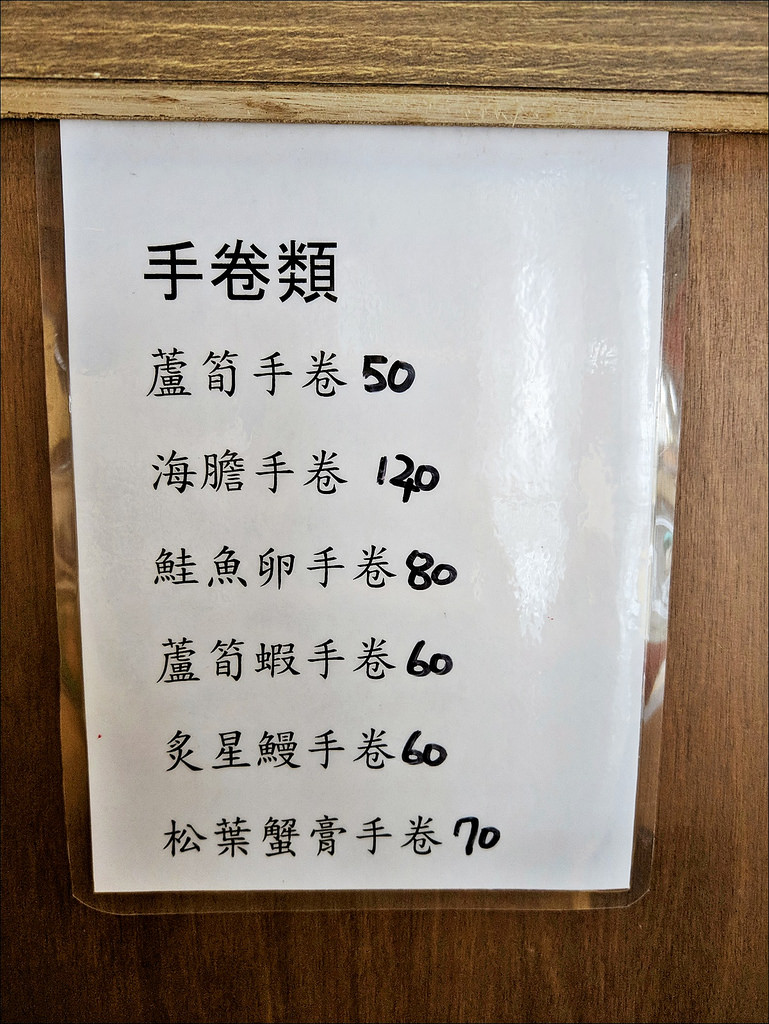 手卷類
蘆筍手卷 50
海膽手卷 120
鮭魚卵手卷 80
蘆筍蝦手卷 60
炙星鰻手卷 60
松葉蟹膏手卷 70